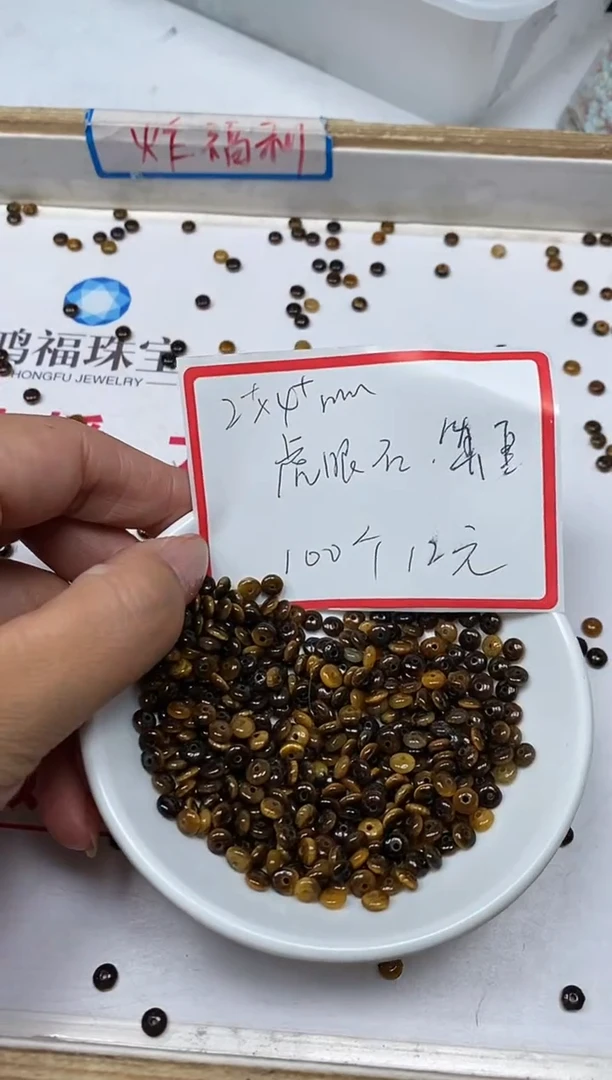 炸福利
鸿福珠宝
HONGFU JEWELRY
2⁺×4⁺mm
虎眼石.算重
100个12元